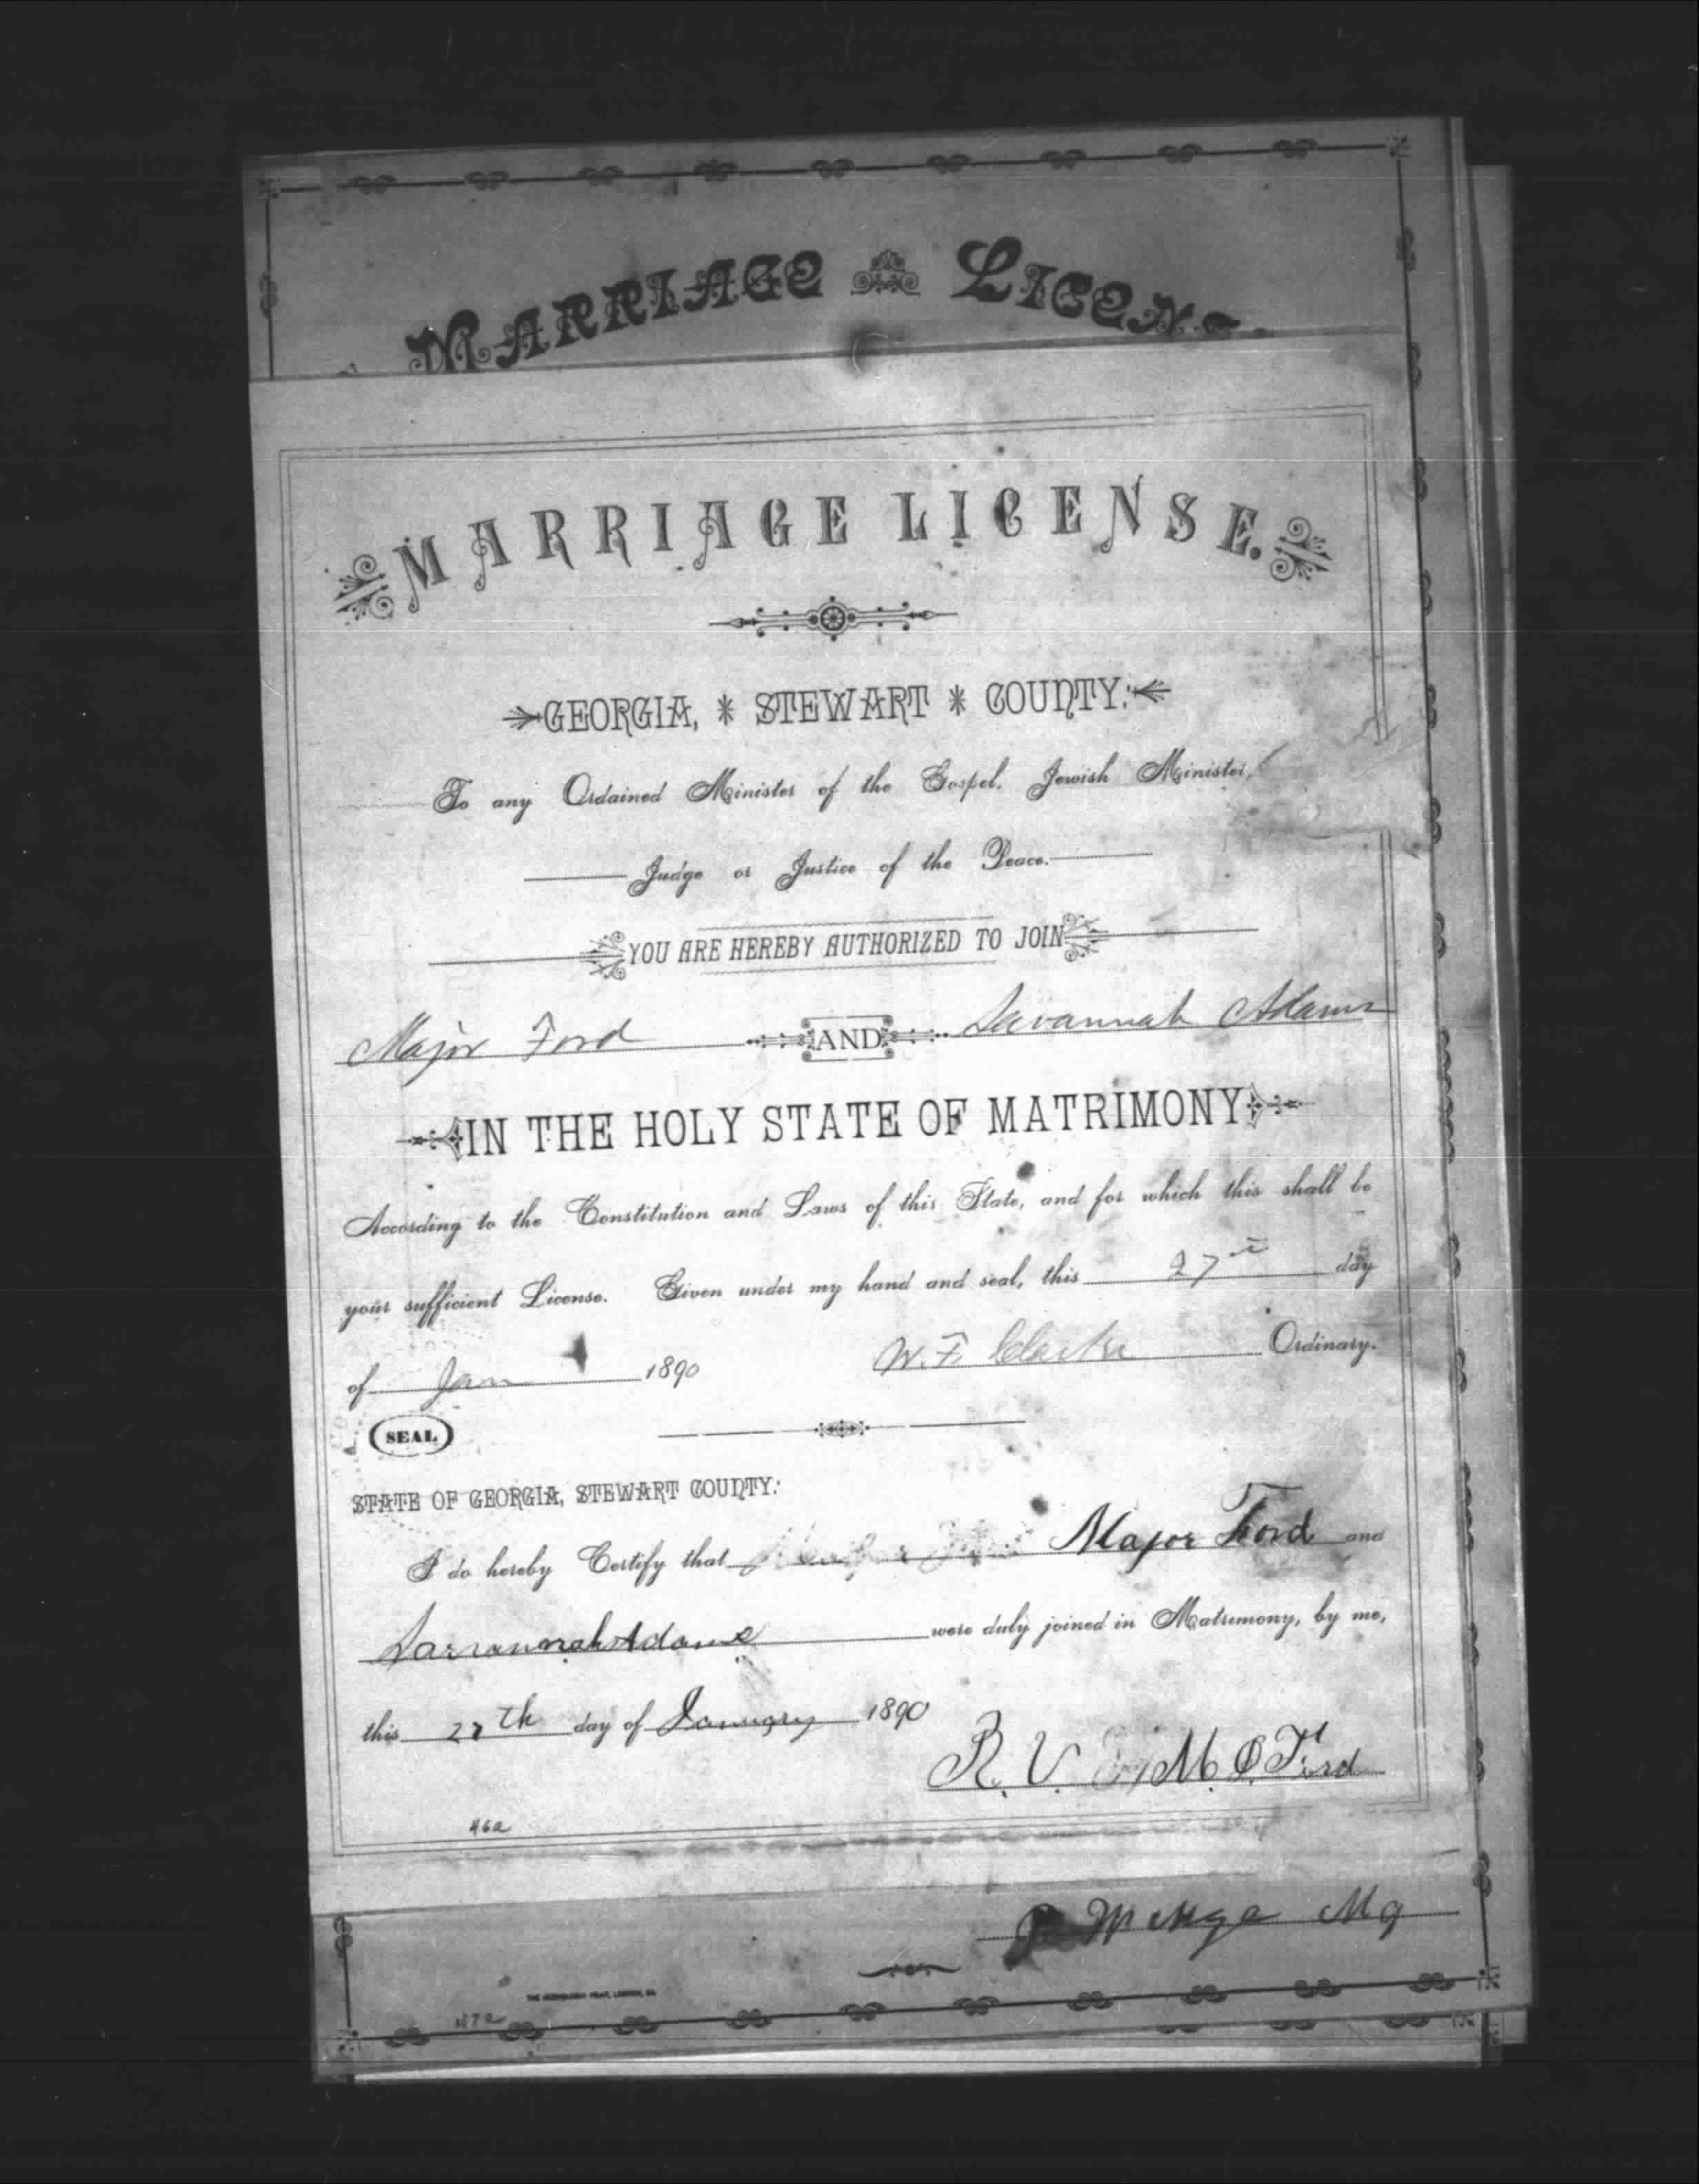 MARRIAGE LICENS
MARRIAGE LICENSE.
GEORGIA, * STEWART * COUNTY:
To any Ordained Minister of the Gospel, Jewish Minister,
Judge or Justice of the Peace.
YOU ARE HEREBY AUTHORIZED TO JOIN
Major Ford AND Savannah Adams
IN THE HOLY STATE OF MATRIMONY
According to the Constitution and Laws of this State, and for which this shall be
your sufficient License. Given under my hand and seal, this 27th day
of Jan 1890 W. F. Clarke Ordinary.
SEAL
STATE OF GEORGIA, STEWART COUNTY:
I do hereby Certify that Major Ford and
Sarrannah Adams were duly joined in Matrimony, by me,
this 27th day of January 1890
R. V. M. Ford
46a
Mg
47a